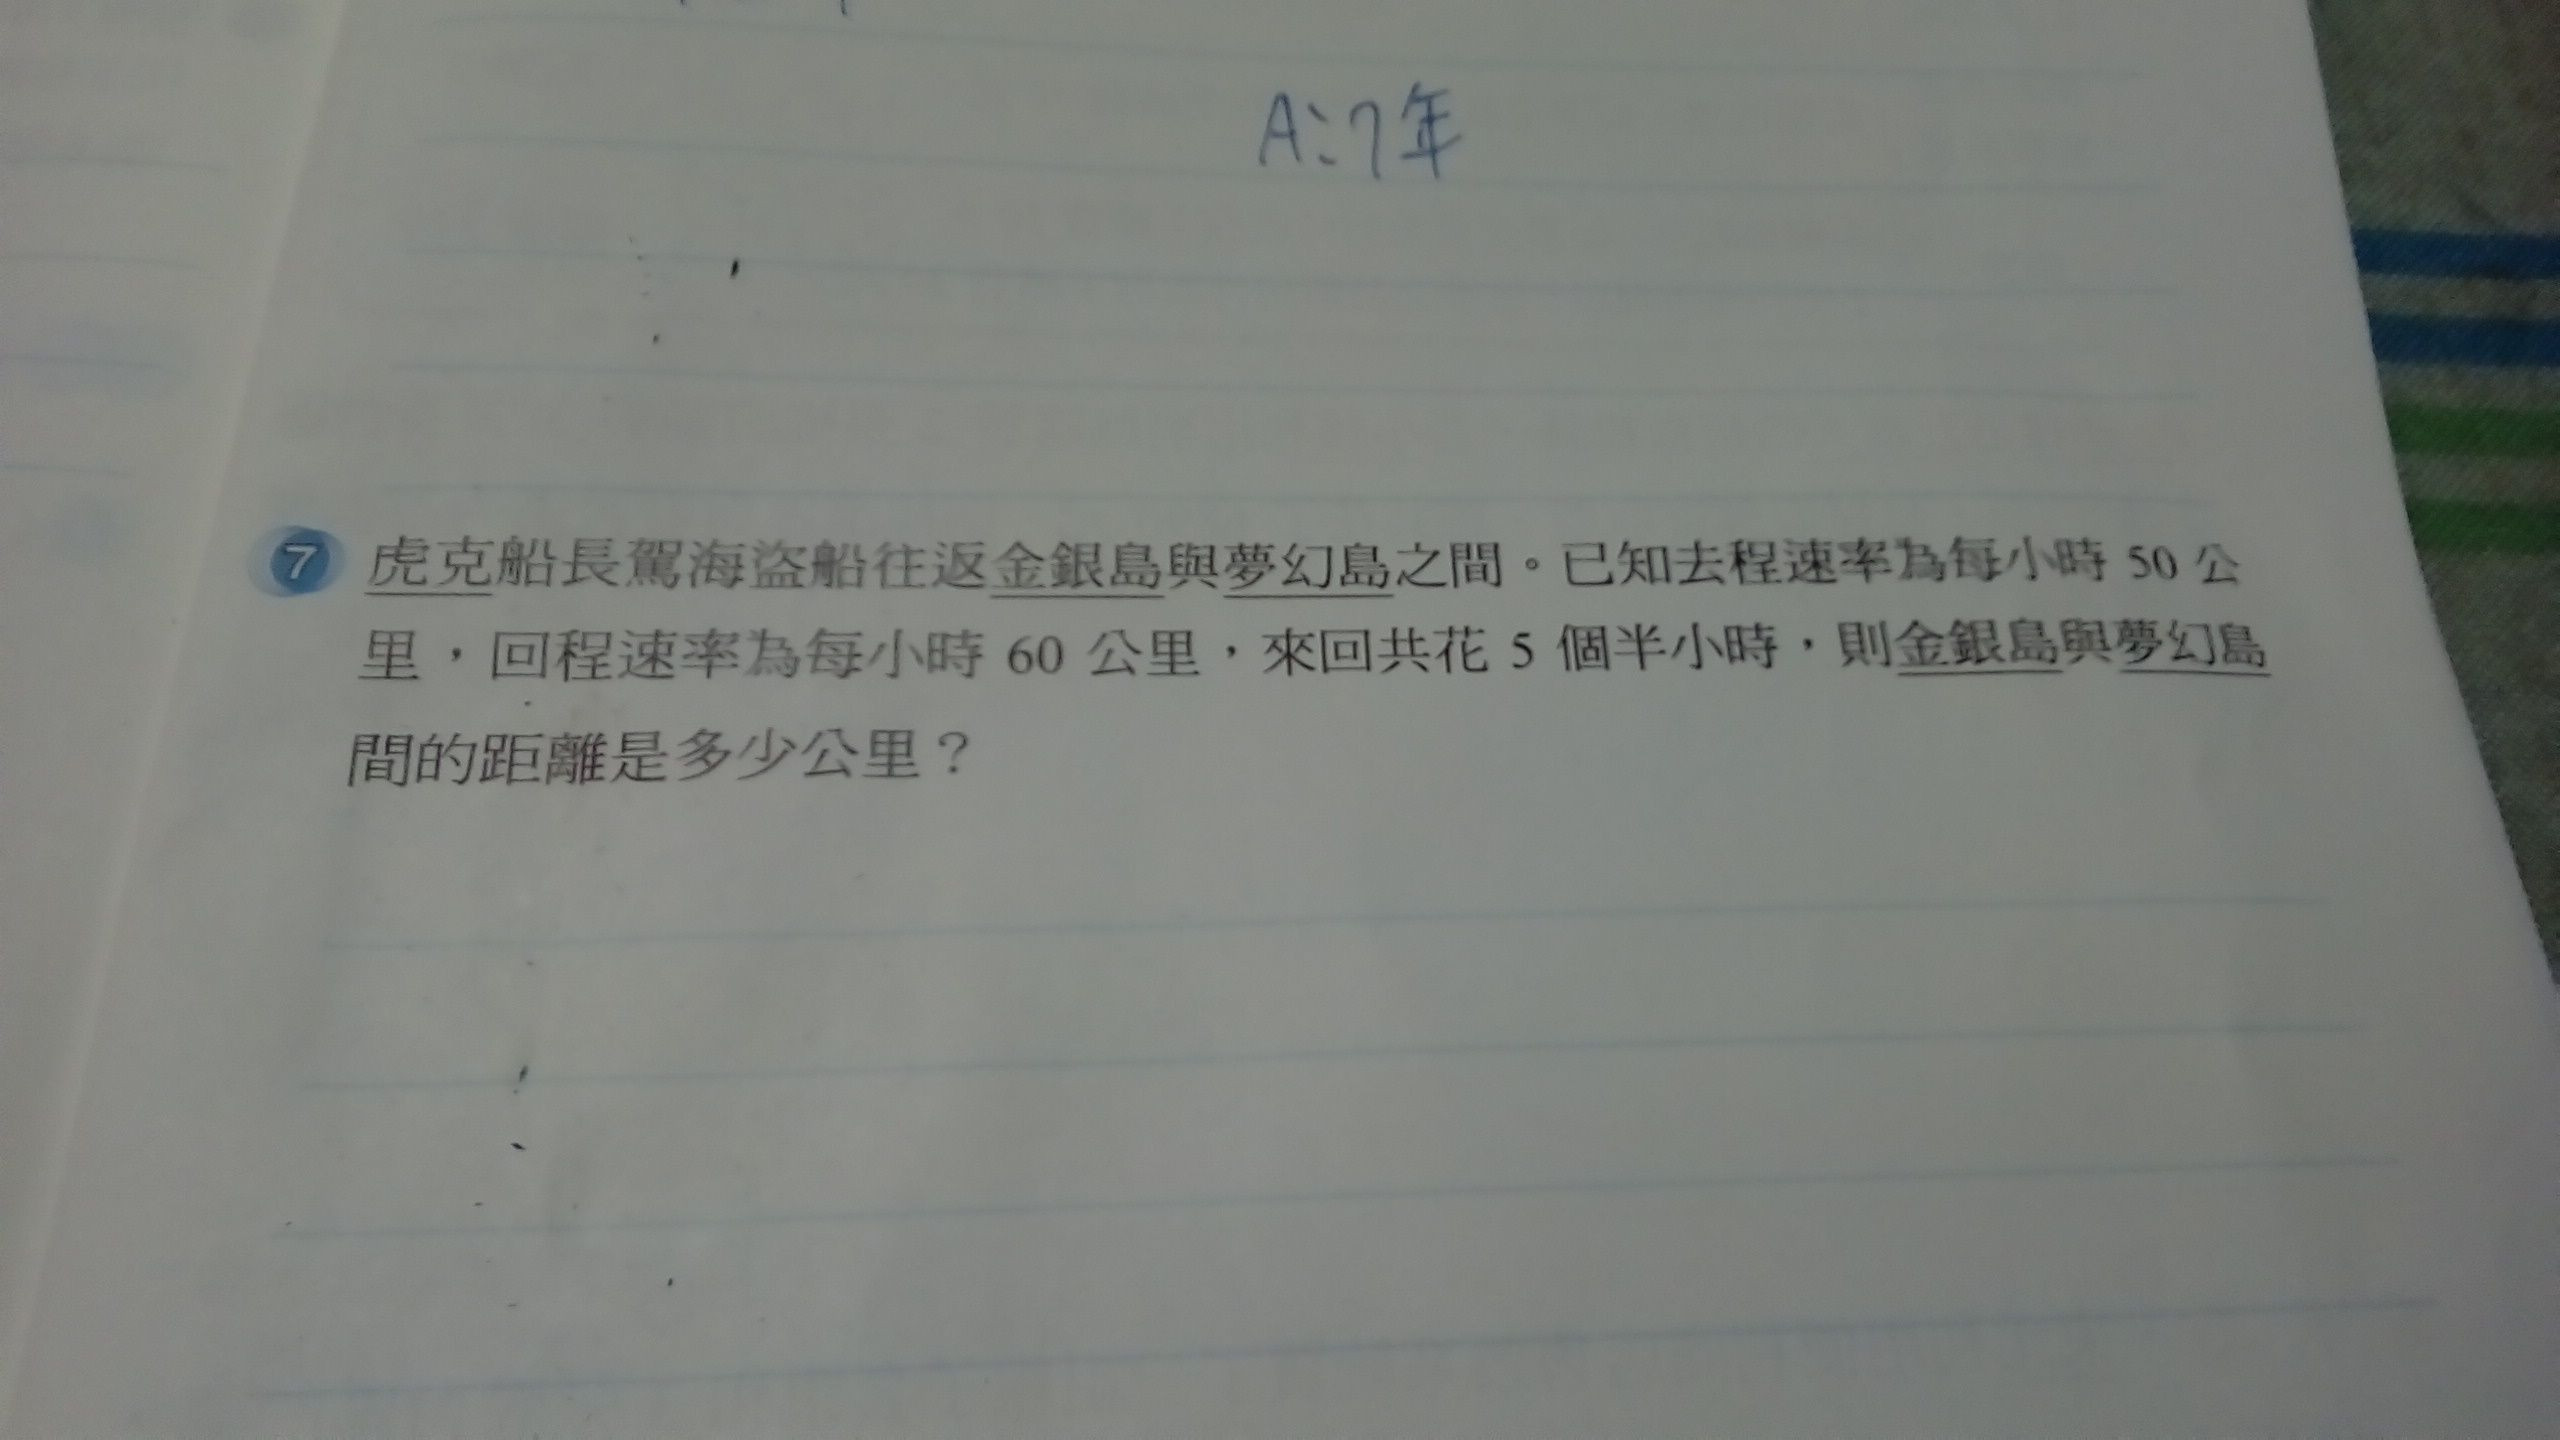 A:7年
7 虎克船長駕海盜船往返金銀島與夢幻島之間。已知去程速率為每小時 50 公
里,回程速率為每小時 60 公里,來回共花 5 個半小時,則金銀島與夢幻島
間的距離是多少公里?